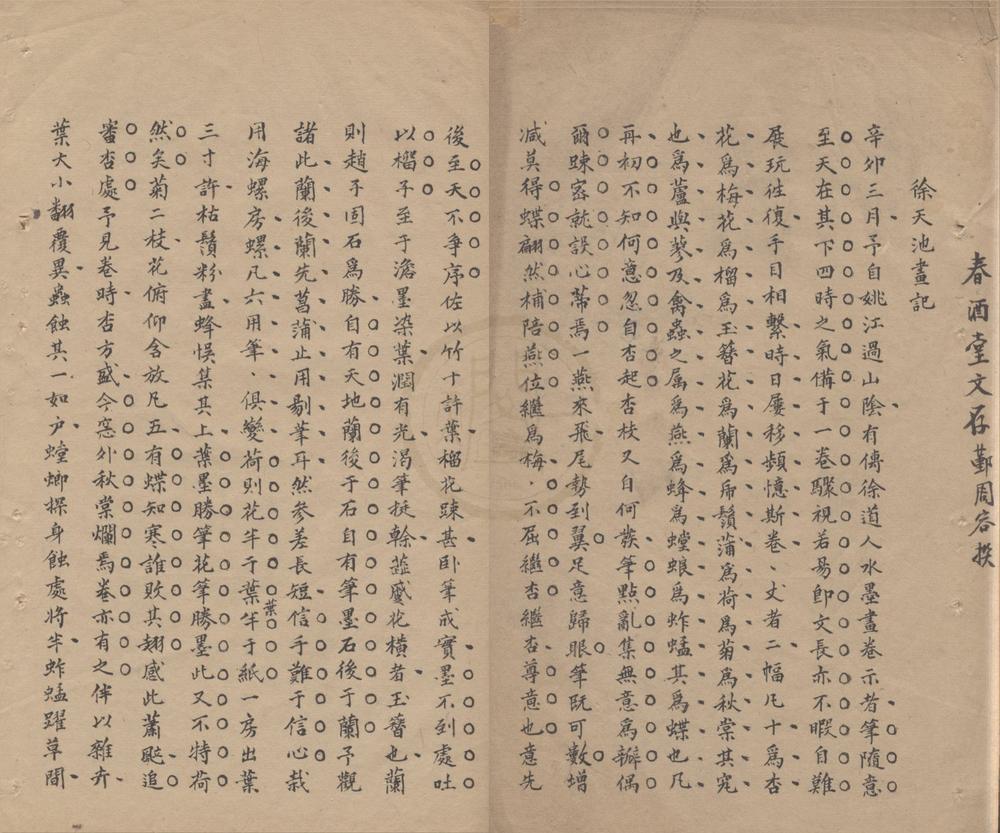 春酒堂文存鄞周容撰
徐天池畫記
辛卯三月予自姚江過山陰有傳徐道人水墨畫卷示者筆隨意
至天在其下四時之氣備于一卷驟視若易即文長亦不暇自難
展玩往復手目相繫時日屢移頻憶斯卷、丈者二幅凡十為杏
花為梅花為榴為玉簪花為蘭為帚鬚蒲為荷為菊為秋棠其究
也為蘆與蓼及禽蟲之属為燕為蜂為螳蜋為蚱蜢其為蝶也凡
再初不知何意忽自杏起杏枝又自何發筆點亂集無意為瓣偶
爾踈密就誤心蒂焉一燕來飛尾勢到翼足意歸眼筆既可數增
減莫得蝶翩然補陪燕位繼為梅、不屈繼杏繼杏尊意也意先
後至天不爭序佐以竹十許葉榴花踈甚卧筆戒實墨不到處吐
以榴子至于澹墨染葉濶有光渴筆挺榦蓝蔵花橫者玉簪也蘭
則趙子固石為勝自有天地蘭後于石自有筆墨石後于蘭予觀
諸此蘭後蘭先菖蒲止用剔筆耳然參差長短信手難于信心栽
用海螺房螺凡六用筆、俱變荷則花半于葉葉半于紙一房出葉
三寸許枯鬚粉盡蜂悞集其上葉墨勝筆花筆勝墨此又不特荷
然矣菊二枝花俯仰含放凡五有蝶知寒誰敗其翅感此蕭颼追
審杏處予見卷時杏方盛今窓外秋棠爛焉卷亦有之伴以雜卉
葉大小翻覆異蟲蝕其一如户螳螂探身蝕處將半蚱蜢躍草間